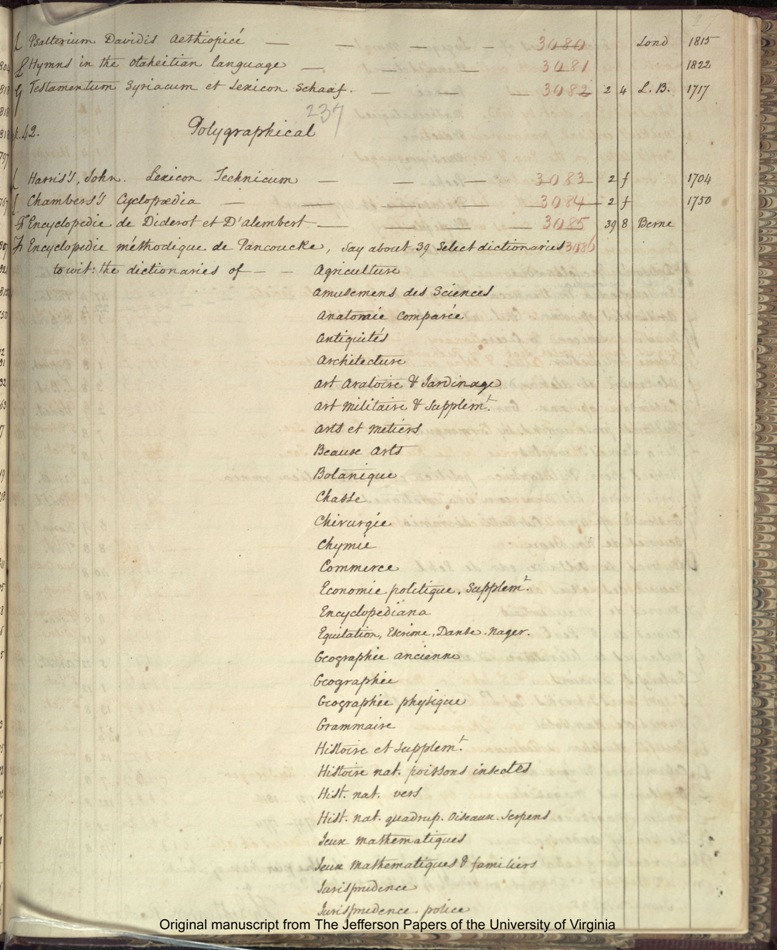 Psalterium Davidis Aethiopicé — — — — 3080 Lond 1815
Hymns in the otaheitian language — — 3081 1822
Testamentum Syriacum et Lexicon Schaaf. — — — 3082 2 4 L.B. 1717
237
42. Polygraphical
Harris's, John. Lexicon Technicum — — — — 3083 2 f 1704
Chambers's Cyclopædia — — — — 3084 2 f 1750
Encyclopedie de Diderot et D'alembert — — — 3085 39 8 Berne
Encyclopedie méthodique de Pancoucke, say about 39 select dictionaries 3086
to wit: the dictionaries of — — Agriculture
Amusemens des Sciences
Anatomie comparée
Antiquités
Architecture
Art Aratoire & Jardinage
Art militaire & Supplemt.
Arts et metiers
Beaux Arts
Botanique
Chasse
Chirurgie
Chymie
Commerce
Economie politique. Supplemt.
Encyclopediana
Equitation, Escrime, Danse. Nager.
Geographie ancienne
Geographie
Geographie physique
Grammaire
Histoire et supplemt.
Histoire nat. poissons insectes
Hist. nat. vers
Hist. nat. quadrup. Oiseaux. Serpens
Jeux mathematiques
Jeux Mathematiques & familiers
Jurisprudence
Jurisprudence police
Original manuscript from The Jefferson Papers of the University of Virginia